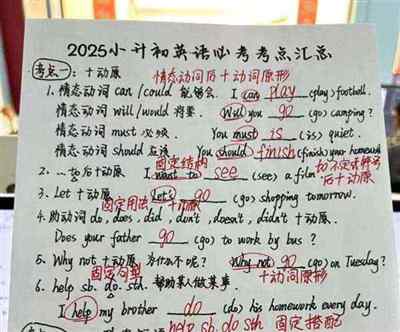 2025小升初英语必考考点汇总
考点一：十动原 情态动词后十动词原形
1. 情态动词 can/could 能够会. I can play (play) football.
情态动词 will/would 将要. Will you go (go) camping?
情态动词 must 必须. You must is (is) quiet.
情态动词 should 应该. You should finish (finish) your homework
固定结构
2. ...to后十动原 I want to see (see) a film. to 不定式符号后十动原
3. Let 十动原 Let's go (go) shopping tomorrow.
固定用法 十动原
4. 助动词 do, does, did, don't, doesn't, didn't 十动原.
Does your father go (go) to work by bus?
5. Why not 十动原 为什么不呢? Why not go (go) on Tuesday?
固定句型 十动词原形
6. help sb. do. sth. 帮助某人做某事.
I help my brother do (do) his homework every day.
help sb. do sth 固定搭配